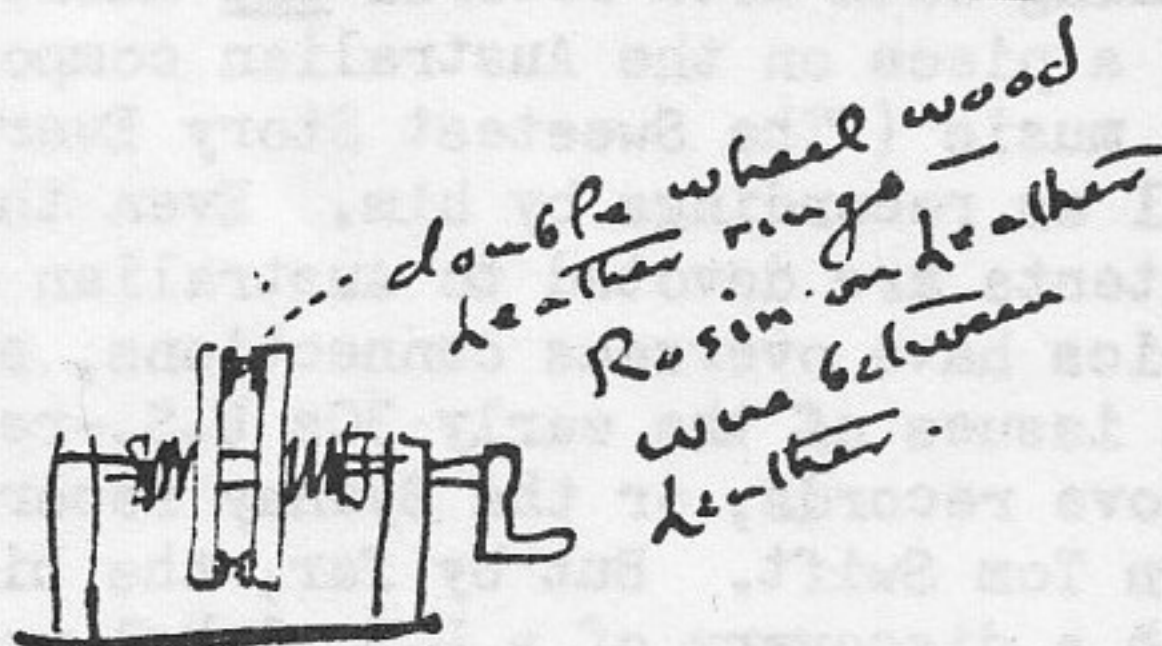 double wheel wood
Leather rings —
Rosin on Leather
wire between
Leather.